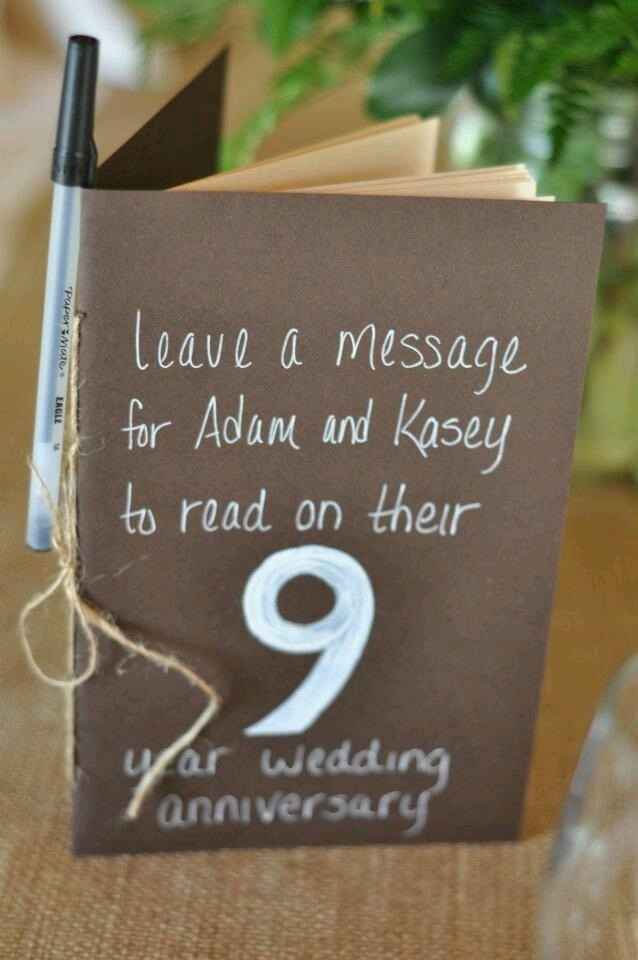 leave a message
for Adam and Kasey
to read on their
9
year wedding
anniversary
"Paper:Mate"
EAGLE